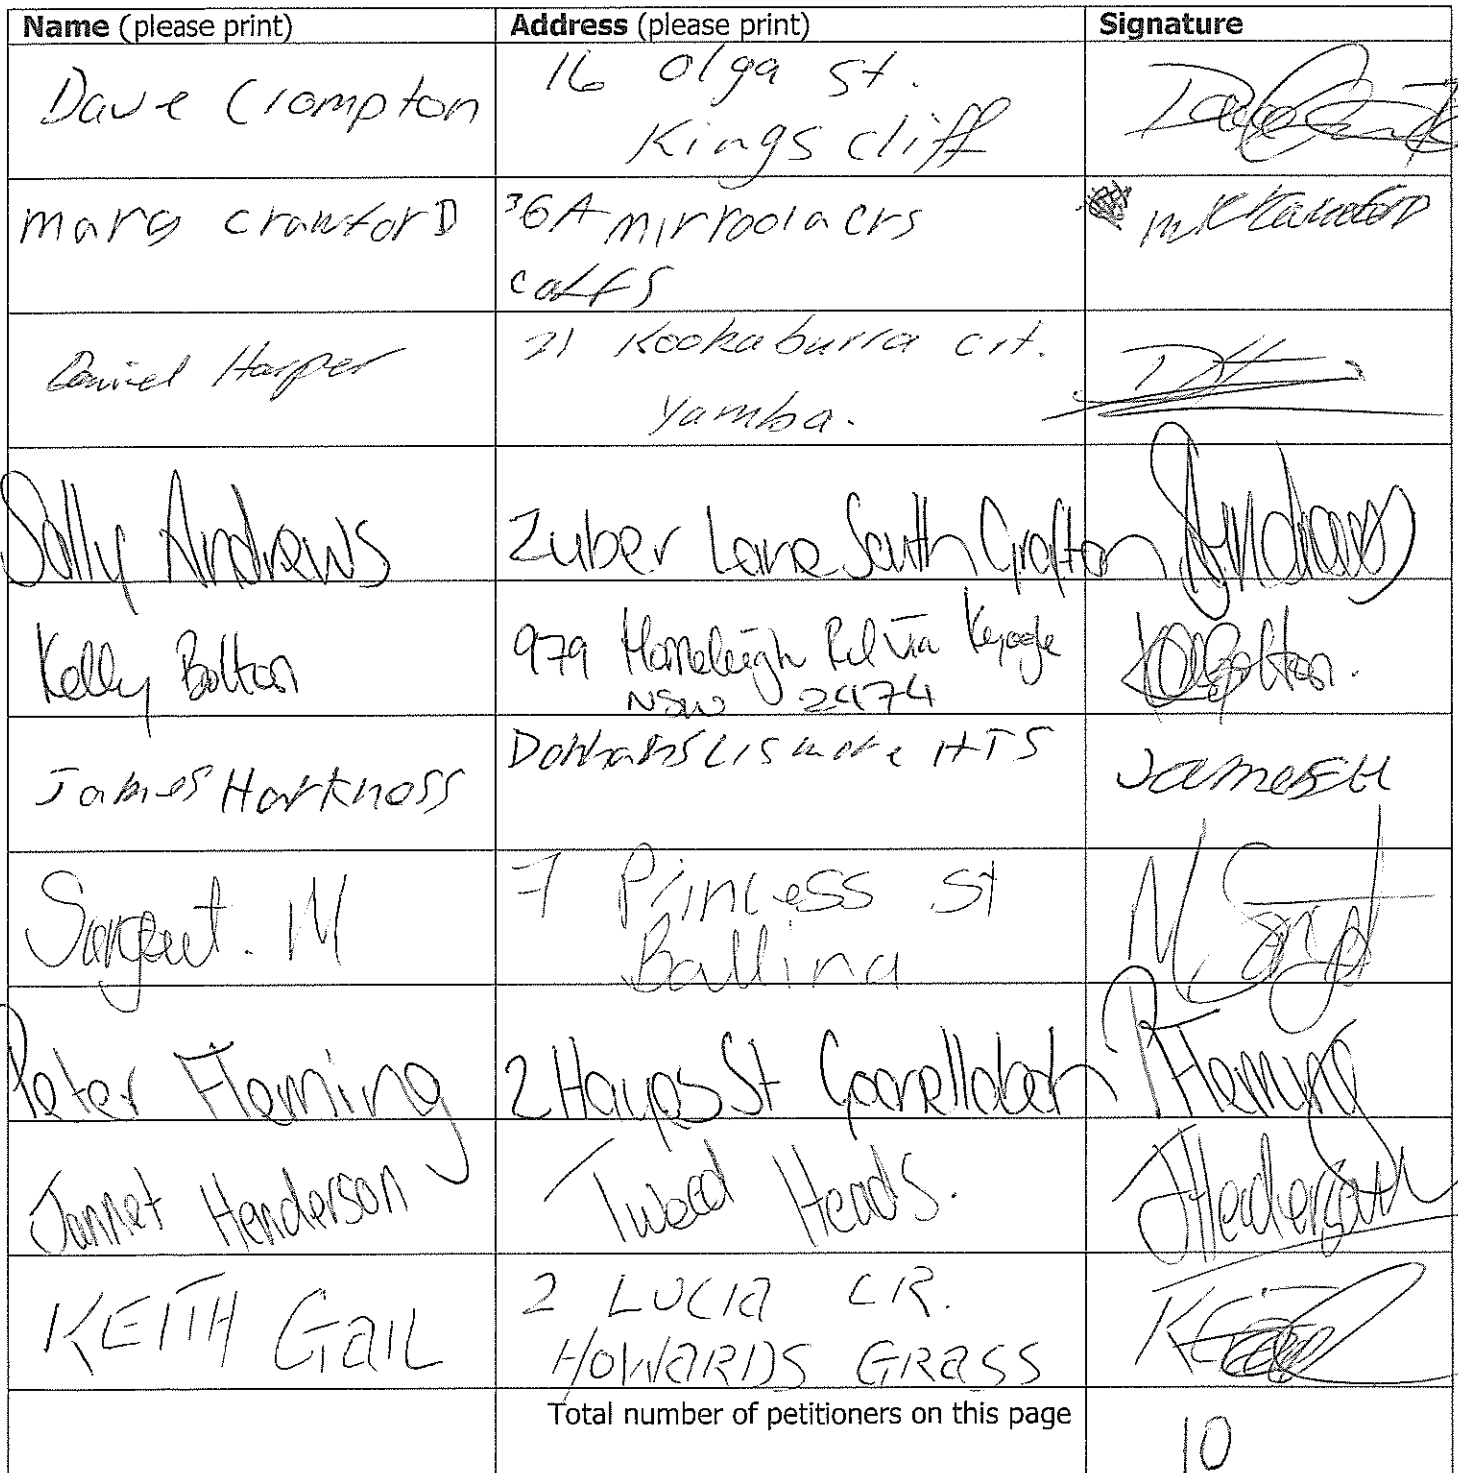 Name (please print) Address (please print) Signature
Dave Crompton 16 Olga St.
Kings cliff
marg crawforD 36A mirroola crs
coffs
Daniel Harper 21 Kookaburra crt. DH
Yamba.
Sally Andrews Zuber Lane South Grafton SAndrews
Kelly Bolton 979 Horseleigh Rd Via Kyogle KBolton.
NSW 2474
James Harkness Donnans Lismore HTS James H
Sargent. M 7 Princess St M Sargent
Ballina
Peter Fleming 2 Hayes St Goonellabah PFleming
Jannet Henderson Tweed Heads. JHenderson
KEITH GaIL 2 LUCIa CR.
HOWARDS GRASS
Total number of petitioners on this page 10